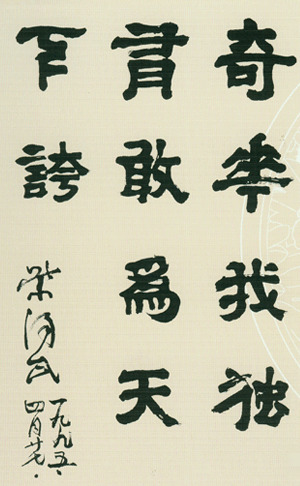 奇華我独
有敢為天
下誇
柴泽民
一九九五、
四月廿七.